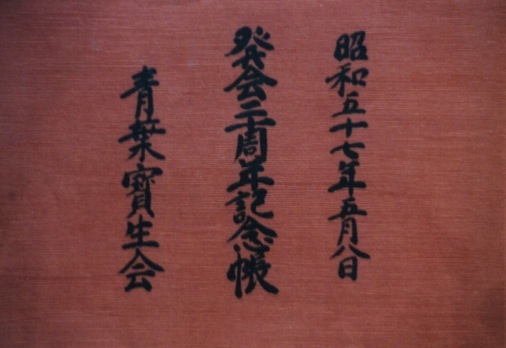 昭和五十七年五月八日
発会二十周年記念帳
青葉寶生会